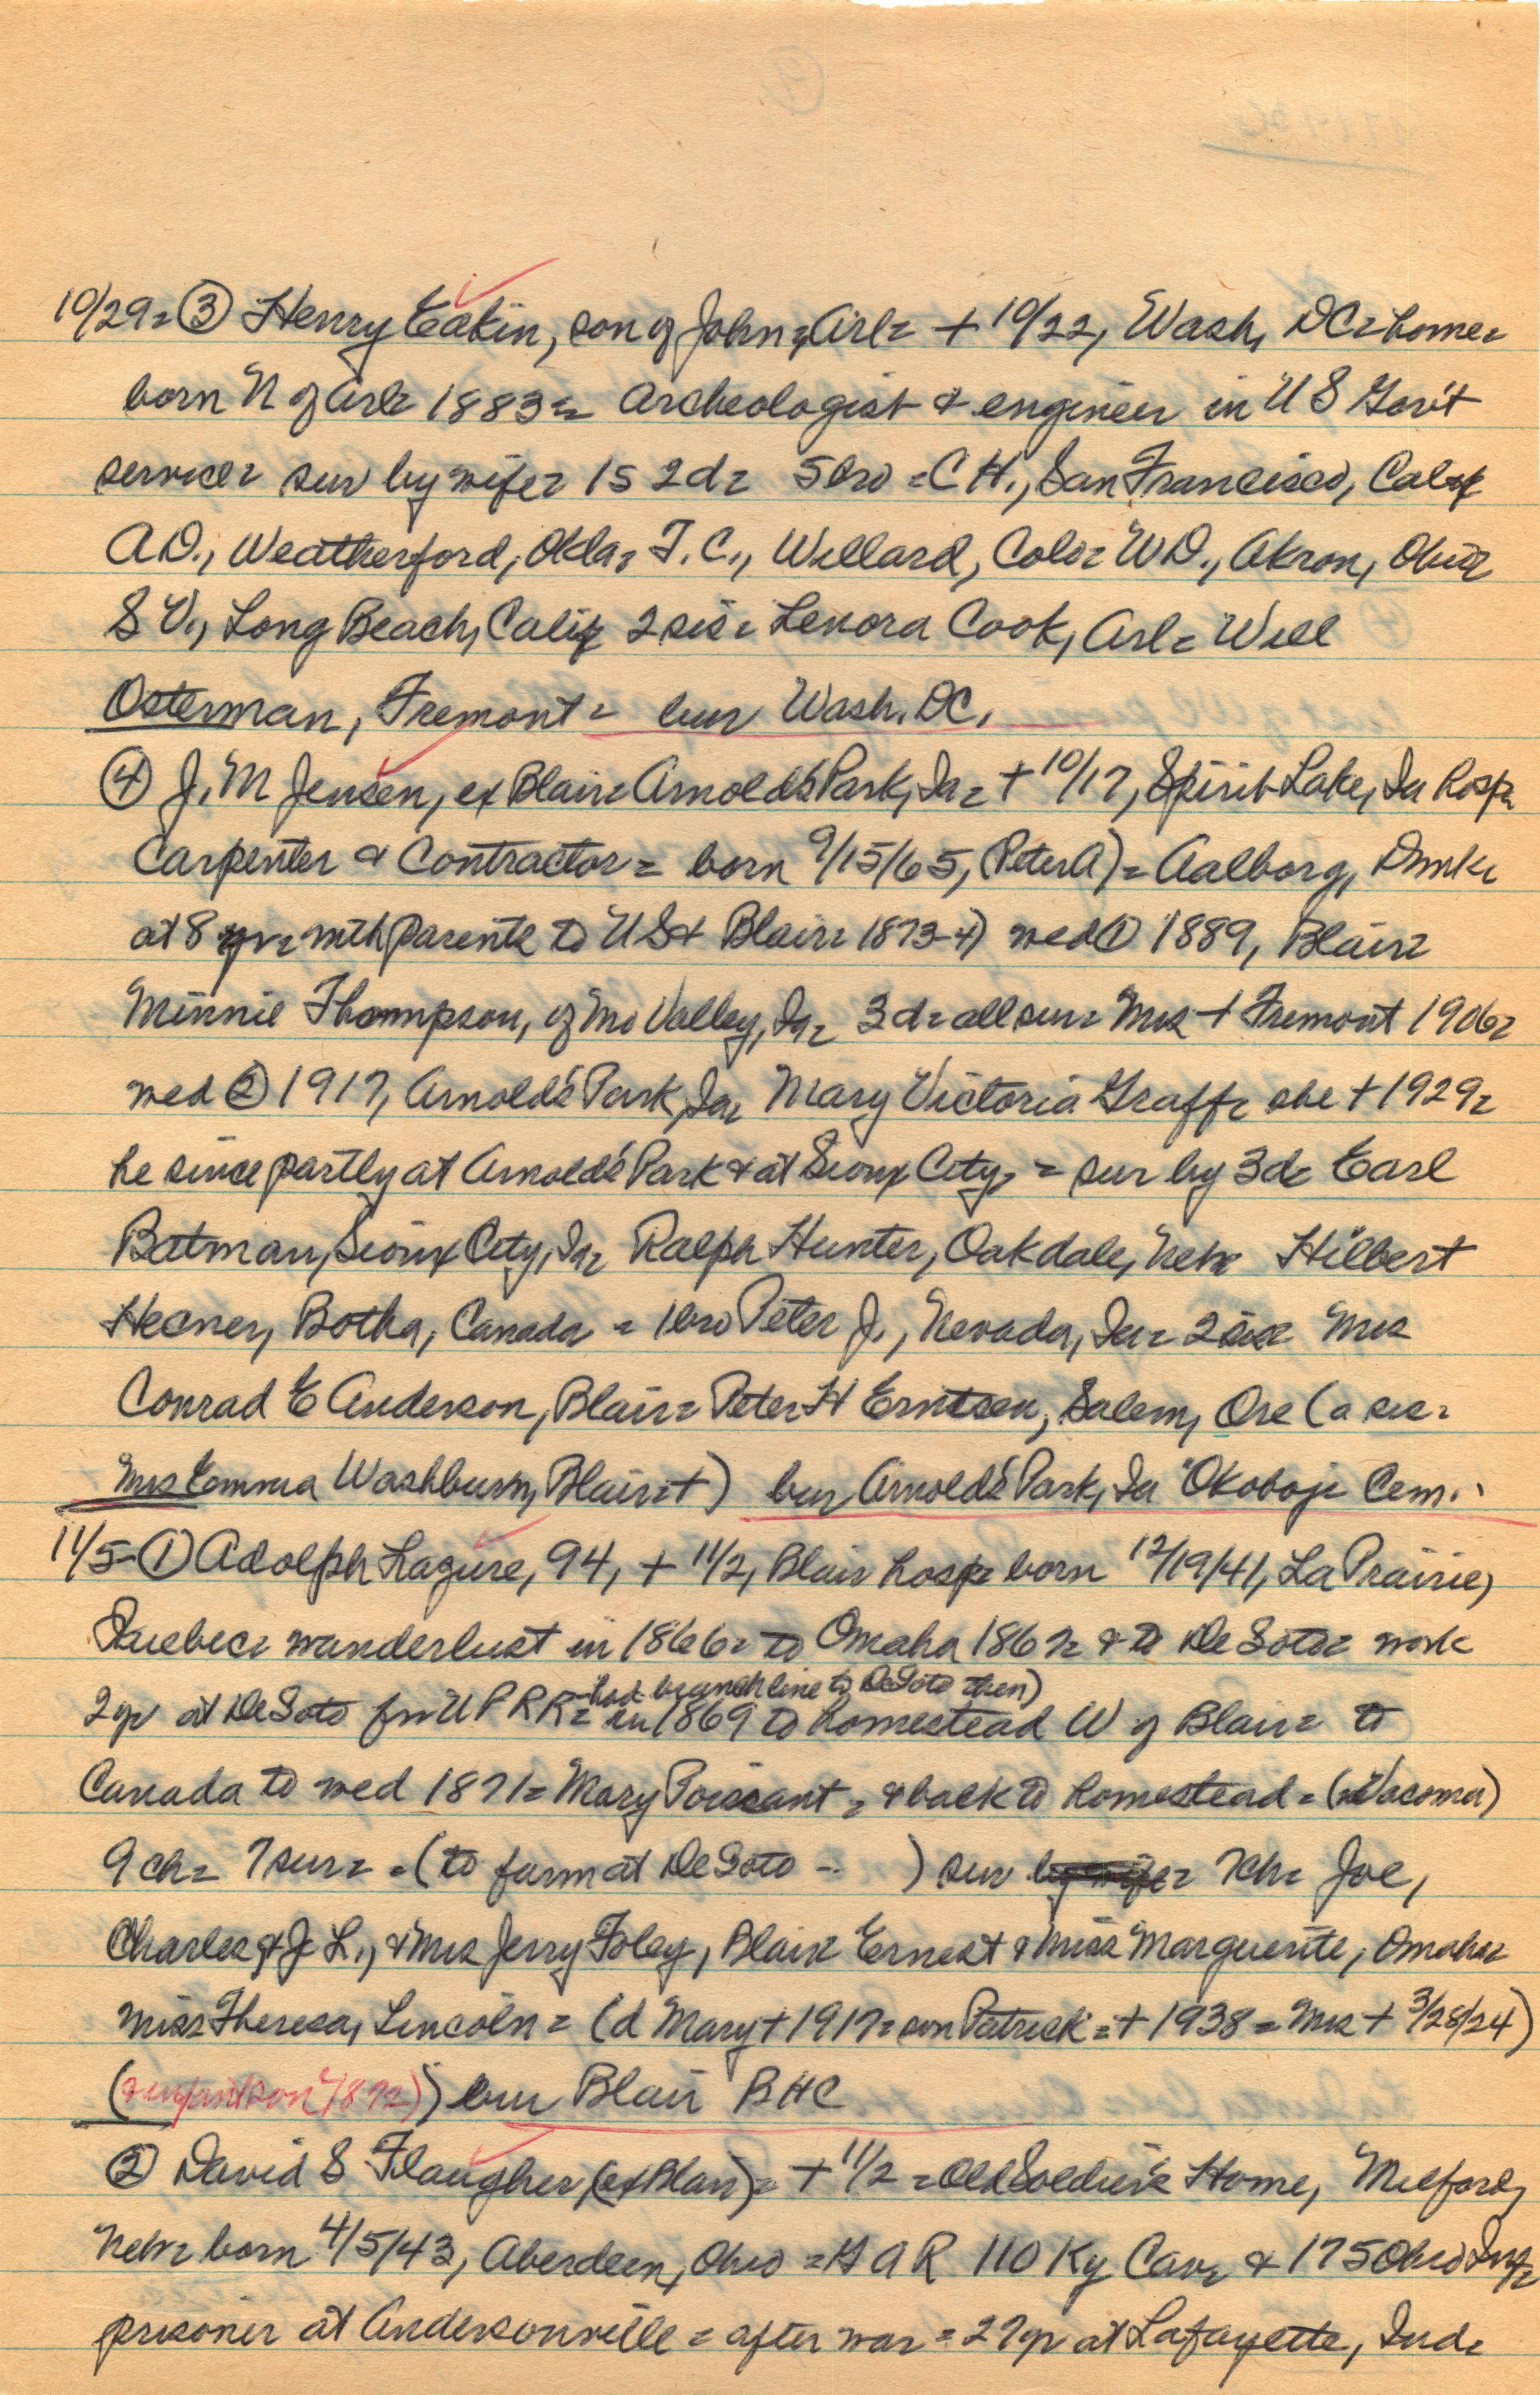 10/29= ③ Henry Eakin, son of John, Arl= + 10/22, Wash, DC= home=
born N of Arl= 1883= Archeologist & engineer in U S Gov't
service= sur by wife= 1S 2d= 5 bro = C H., San Francisco, Calif
A D., Weatherford, Okla= F. C., Willard, Colo= W D., Akron, Ohio=
S V., Long Beach, Calif 2 sis= Lenora Cook, Arl= Will
Osterman, Fremont = bur Wash. DC.
④ J. M Jensen, ex Blair= Arnold's Park, Ia= + 10/17, Spirit Lake, Ia Hosp=
Carpenter & Contractor = born 9/15/65, (Peter A) = Aalborg, Dmk=
at 8 yr= with parents to US & Blair= 1873-4) wed ① 1889, Blair=
Minnie Thompson, of Mo Valley, Ia= 3d= all sur= Mrs + Fremont 1906=
wed ② 1917, Arnold's Park, Ia= Mary Victoria Graff= she + 1929=
he since partly at Arnold's Park & at Sioux City, = sur by 3d= Earl
Batman, Sioux City, Ia= Ralph Hunter, Oakdale, Neb= Hilbert
Hecner, Botha, Canada = 1 bro Peter J., Nevada, Ia= 2 sis= Mrs
Conrad E Anderson, Blair= Peter H Erntsen, Salem, Ore (a sis=
Mrs Emma Washburn, Blair= +) bur Arnold's Park, Ia "Okoboji Cem."
11/5= ① Adolph Lagure, 94, + 11/2, Blair hosp= born 12/19/41, La Prairie,
Quebec= wanderlust in 1866= to Omaha 1867= & to De Soto= work
had branch line to DeSoto then)
2 yr at DeSoto for U P R R= in 1869 to homestead W of Blair= to
Canada to wed 1871= Mary Poissant = & back to homestead = (Vacoma)
9 ch= 7 sur= = (to farm at De Soto - ) sur by wife= 7 ch= Joe,
Charles & J L., & Mrs Jerry Foley, Blair= Ernest & Miss Marguerite, Omaha=
Miss Theresa, Lincoln = (d Mary + 1917= son Patrick = + 1938 = Mrs + 3/28/24)
(& infant son 1872)) bur Blair BHC
② David S Flaugher, (ex Blair) = + 11/2 = Old Soldier's Home, Milford,
Neb= born 4/5/43, Aberdeen, Ohio = G A R 110 Ky Cav= & 175 Ohio Inf=
prisoner at Andersonville = after war = 27 yr at Lafayette, Ind=